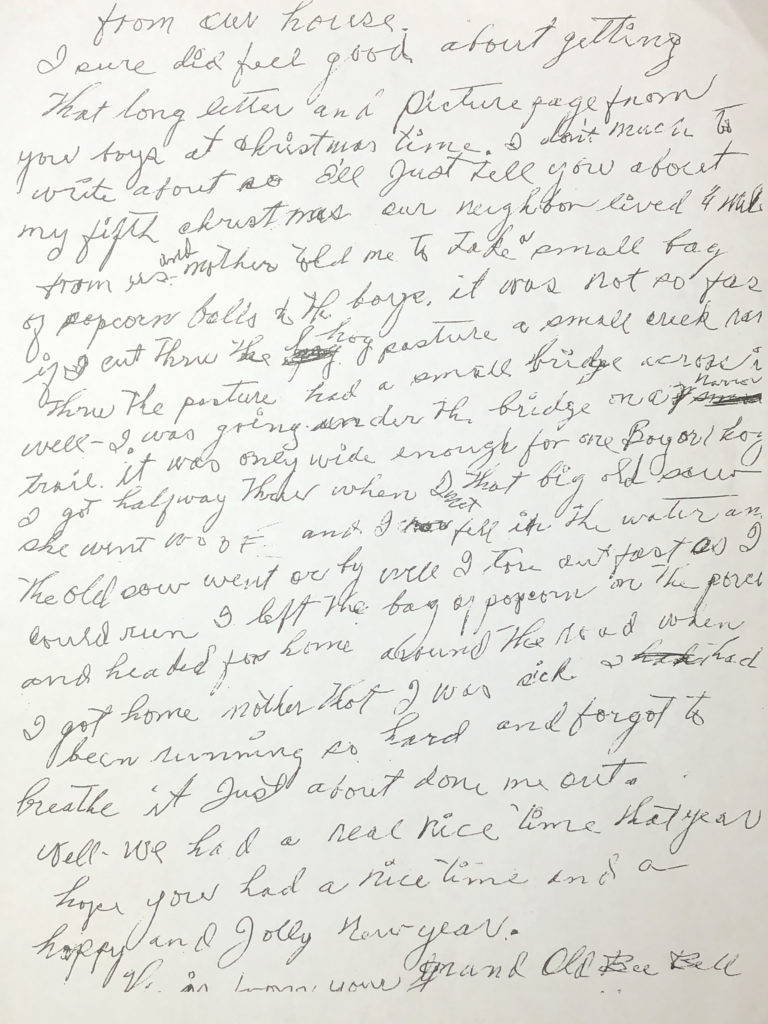 from our house.
I sure did feel good about getting
that long letter and picture page from
your boys at christmas time. I don't much to
write about so I'll Just tell you about
my fifth christmas our neighbor lived 4 mile
from us. and mother told me to take a small bag
of popcorn balls to the boys. it was not so far
if I cut thru the hog pasture a small creek ran
thru the pasture had a small bridge across i
well - I was going under the bridge on a narrow
trail. it was only wide enough for one Boy or 1 hog
I got halfway thru when I met that big old sow
she went WOOF and I fell in the water an
the old sow went or by well I tore out fast as I
could run I left the bag of popcorn on the porch
and headed for home around the road when
I got home mother that I was sick I had
been running so hard and forgot to
breathe it Just about done me out.
Well - We had a real nice time that year
hope your had a nice time and a
happy and Jolly New year.
is your Old Bell